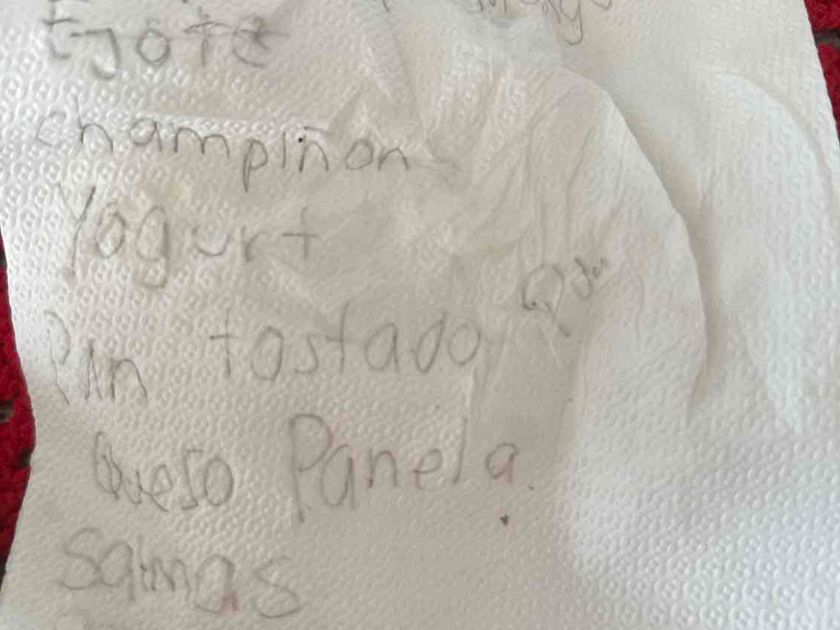 Ejote
champiñon
Yogurt
Pan tostado
Queso Panela
Salmas